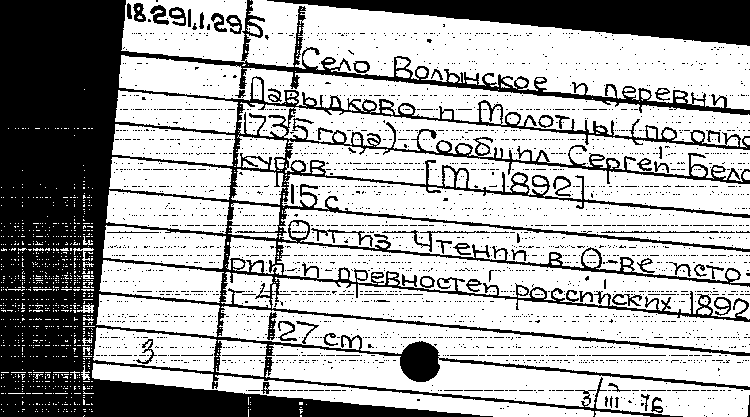 18.291.1.295.
Село Волынское и деревни
Давыдково и Молотцы (по опис
1735 года). Сообщил Сергей Бело
куров. [М., 1892].
15 с.
Отт. из Чтений в О-ве исто-
рии и древностей российских, 1892
т. 4.
27 см.
3
3/III-76